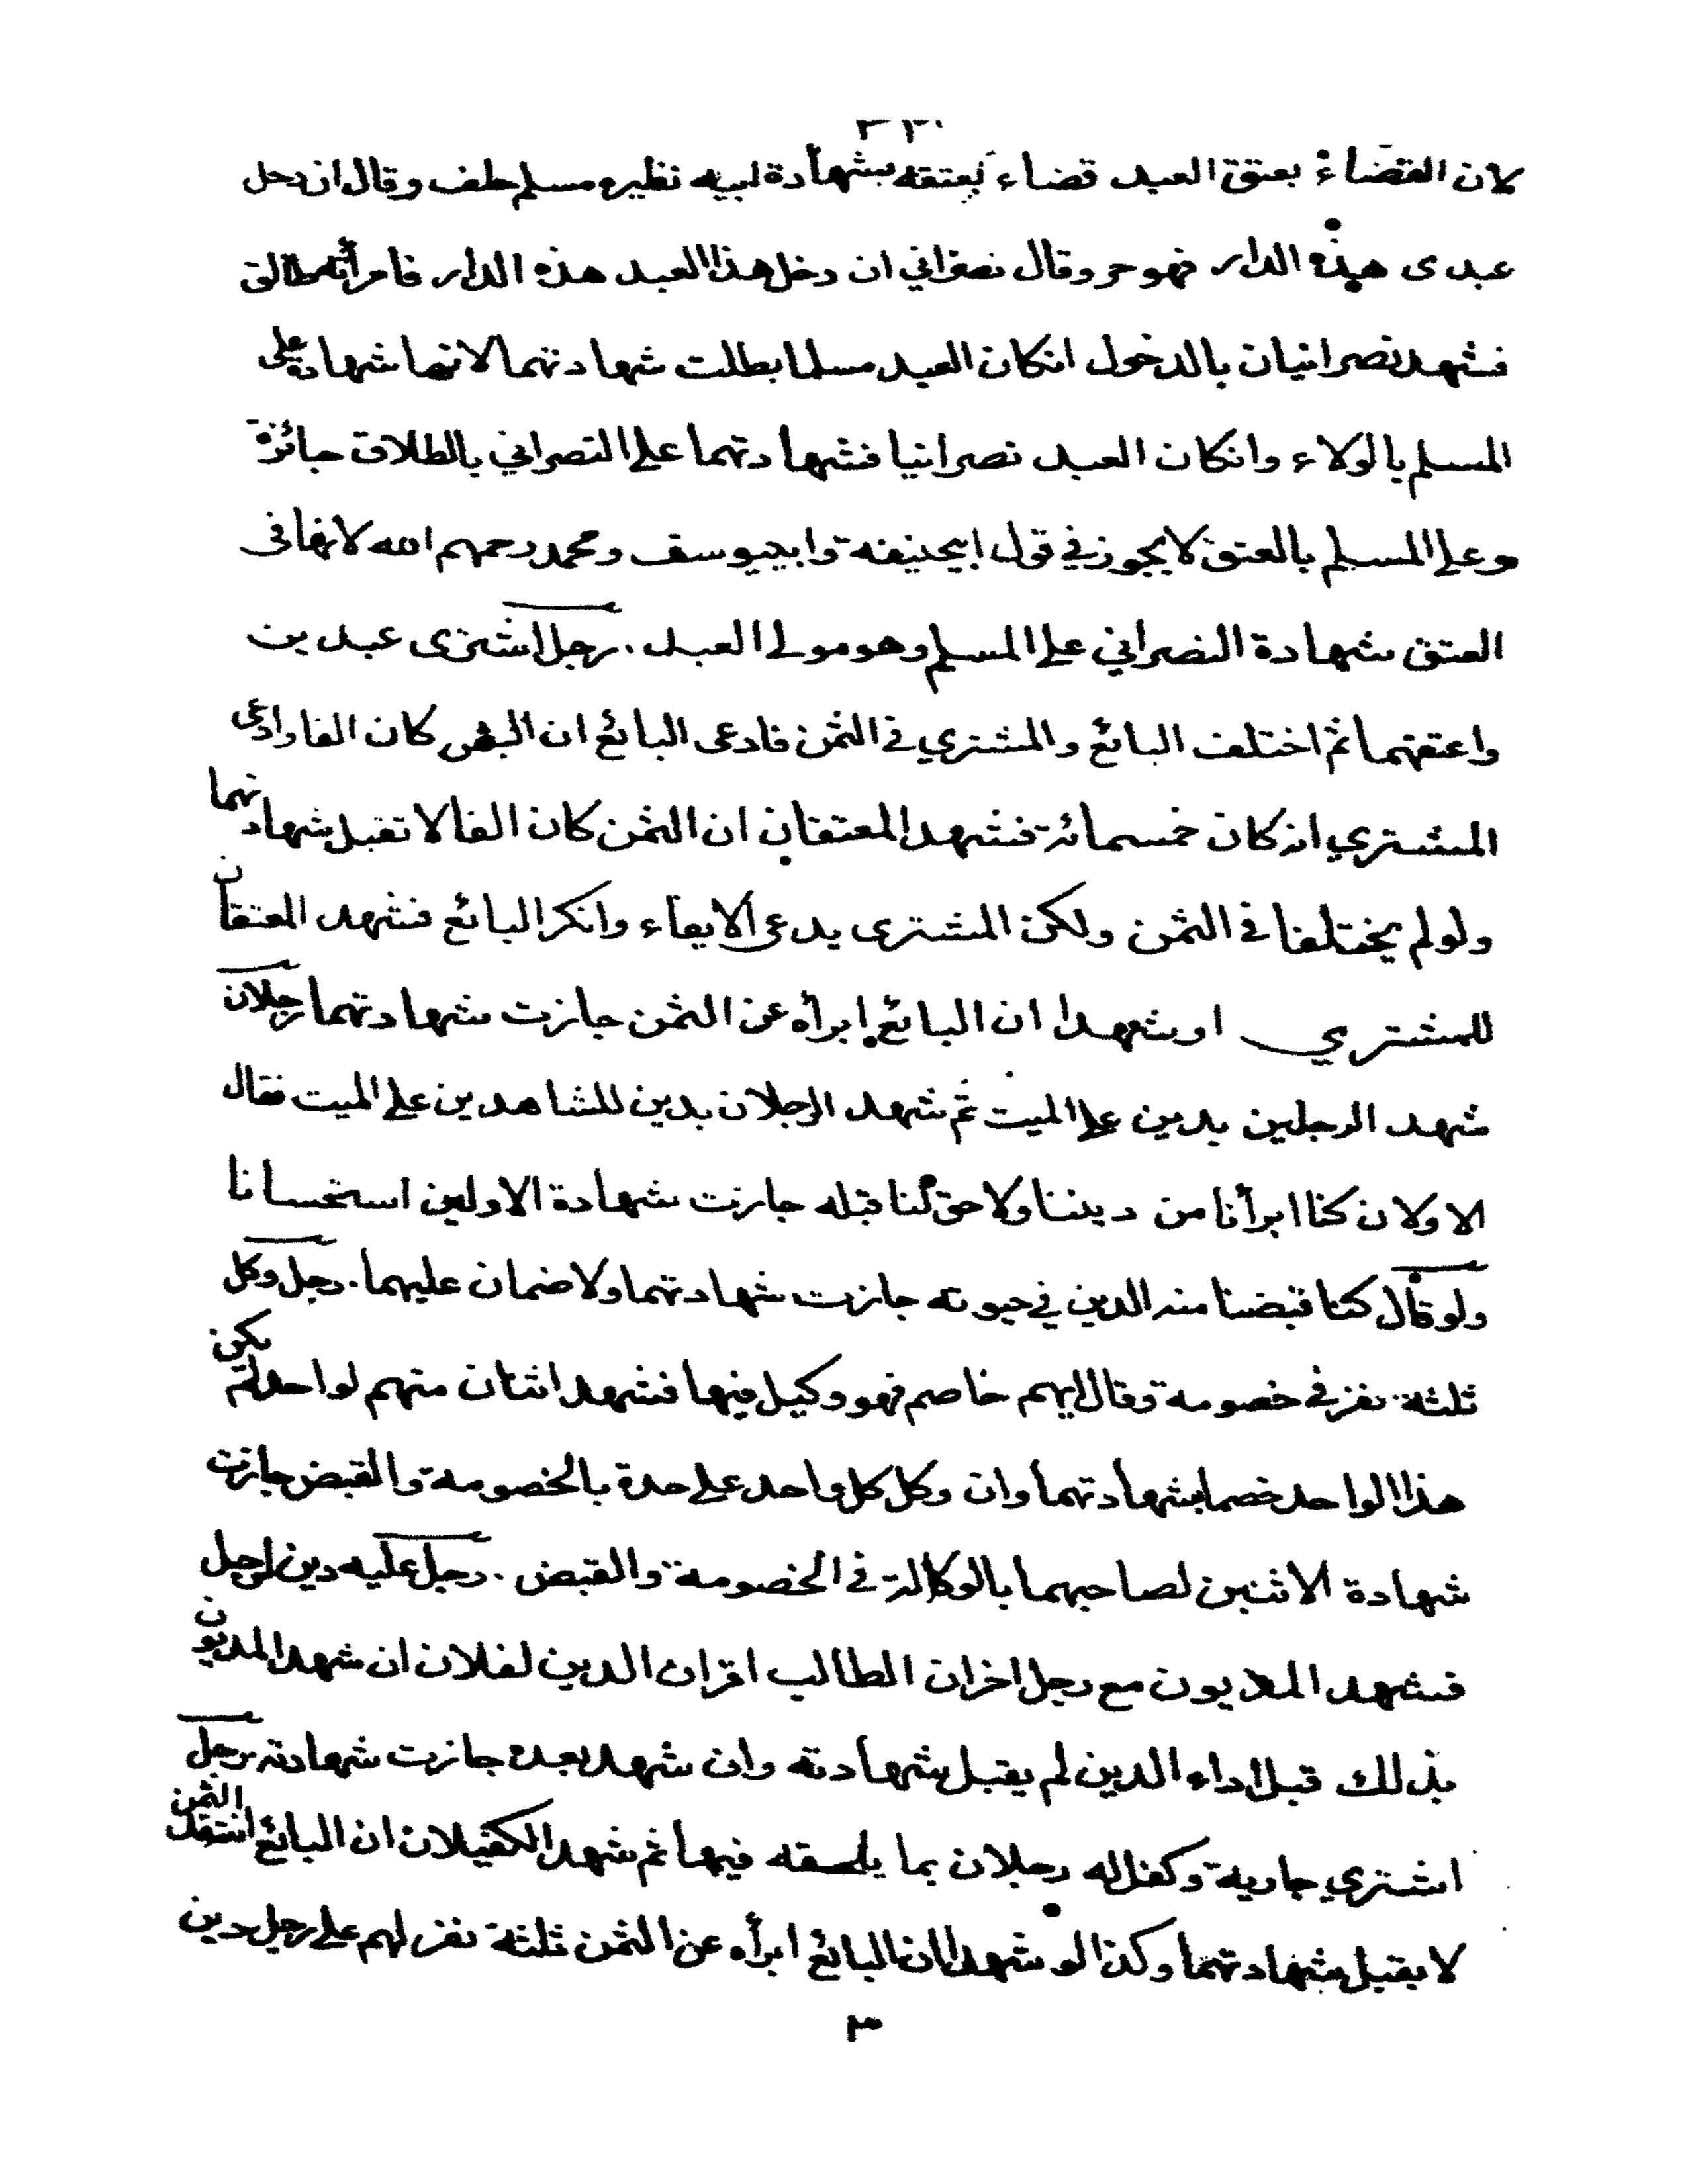 لان القضاء بعتق العبد قضاء بعتقه بشهادة ابيه نظيره مسلم حلف وقال ان دخل
عبدى هذه الدار فهو حر وقال نصرانى ان دخل هذا العبد هذه الدار فامرأته طالق
فشهد نصرانيان بالدخول انكان العبد مسلما بطلت شهادتهما لانها شهادة على
المسلم بالولاء وانكان العبد نصرانيا فشهادتهما على النصراني بالطلاق جائزة
وعلى المسلم بالعتق لا يجوز في قول ابيحنيفة وابييوسف ومحمد رحمهم الله لانها فى
العتق شهادة النصراني على المسلم وهو مولى العبد . رجل اشترى عبدين
واعتقهما ثم اختلف البائع والمشتري في الثمن فادعى البائع ان الثمن كان الفا وادعى
المشتري انه كان خمسمائة فشهد المعتقان ان الثمن كان الفا لا تقبل شهادتهما
ولو لم يختلفا في الثمن ولكن المشترى يدعى الايفاء وانكر البائع فشهد المعتقان
للمشتري او شهدا ان البائع ابرأه عن الثمن جازت شهادتهما رجلان
شهد الرجلين بدين على الميت ثم شهد الرجلان بدين للشاهدين على الميت فقال
الاولان كنا ابرأنا من ديننا ولا حق لنا قبله جازت شهادة الاولين استحسانا
ولو قال كنا قبضنا منه الدين في حيوته جازت شهادتهما ولا ضمان عليهما . رجل وكل
ثلثة نفر في خصومة وقال ايهم خاصم فهو وكيل فيها فشهد اثنان منهم لواحد لم يكن
هذا الواحد خصما بشهادتهما وان وكل كل واحد على حدة بالخصومة والقبض جازت
شهادة الاثنين لصاحبهما بالوكالة في الخصومة والقبض . رجل عليه دين لرجل
فشهد المديون مع رجل اخر ان الطالب اقر ان الدين لفلان ان شهد المديون
بذلك قبل اداء الدين لم يقبل شهادته وان شهد بعده جازت شهادته رجل
اشتري جارية وكفل له رجلان بما يلحقه فيها ثم شهد الكفيلان ان البائع انتقد الثمن
لا يقبل شهادتهما وكذا لو شهدا ان البائع ابرأه عن الثمن ثلثة نفر لهم على رجل دين